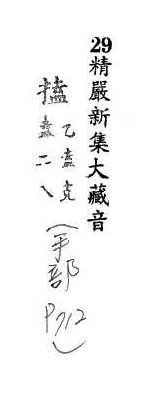 29精嚴新集大藏音
搕
乙盍克
二
(手部
P712)